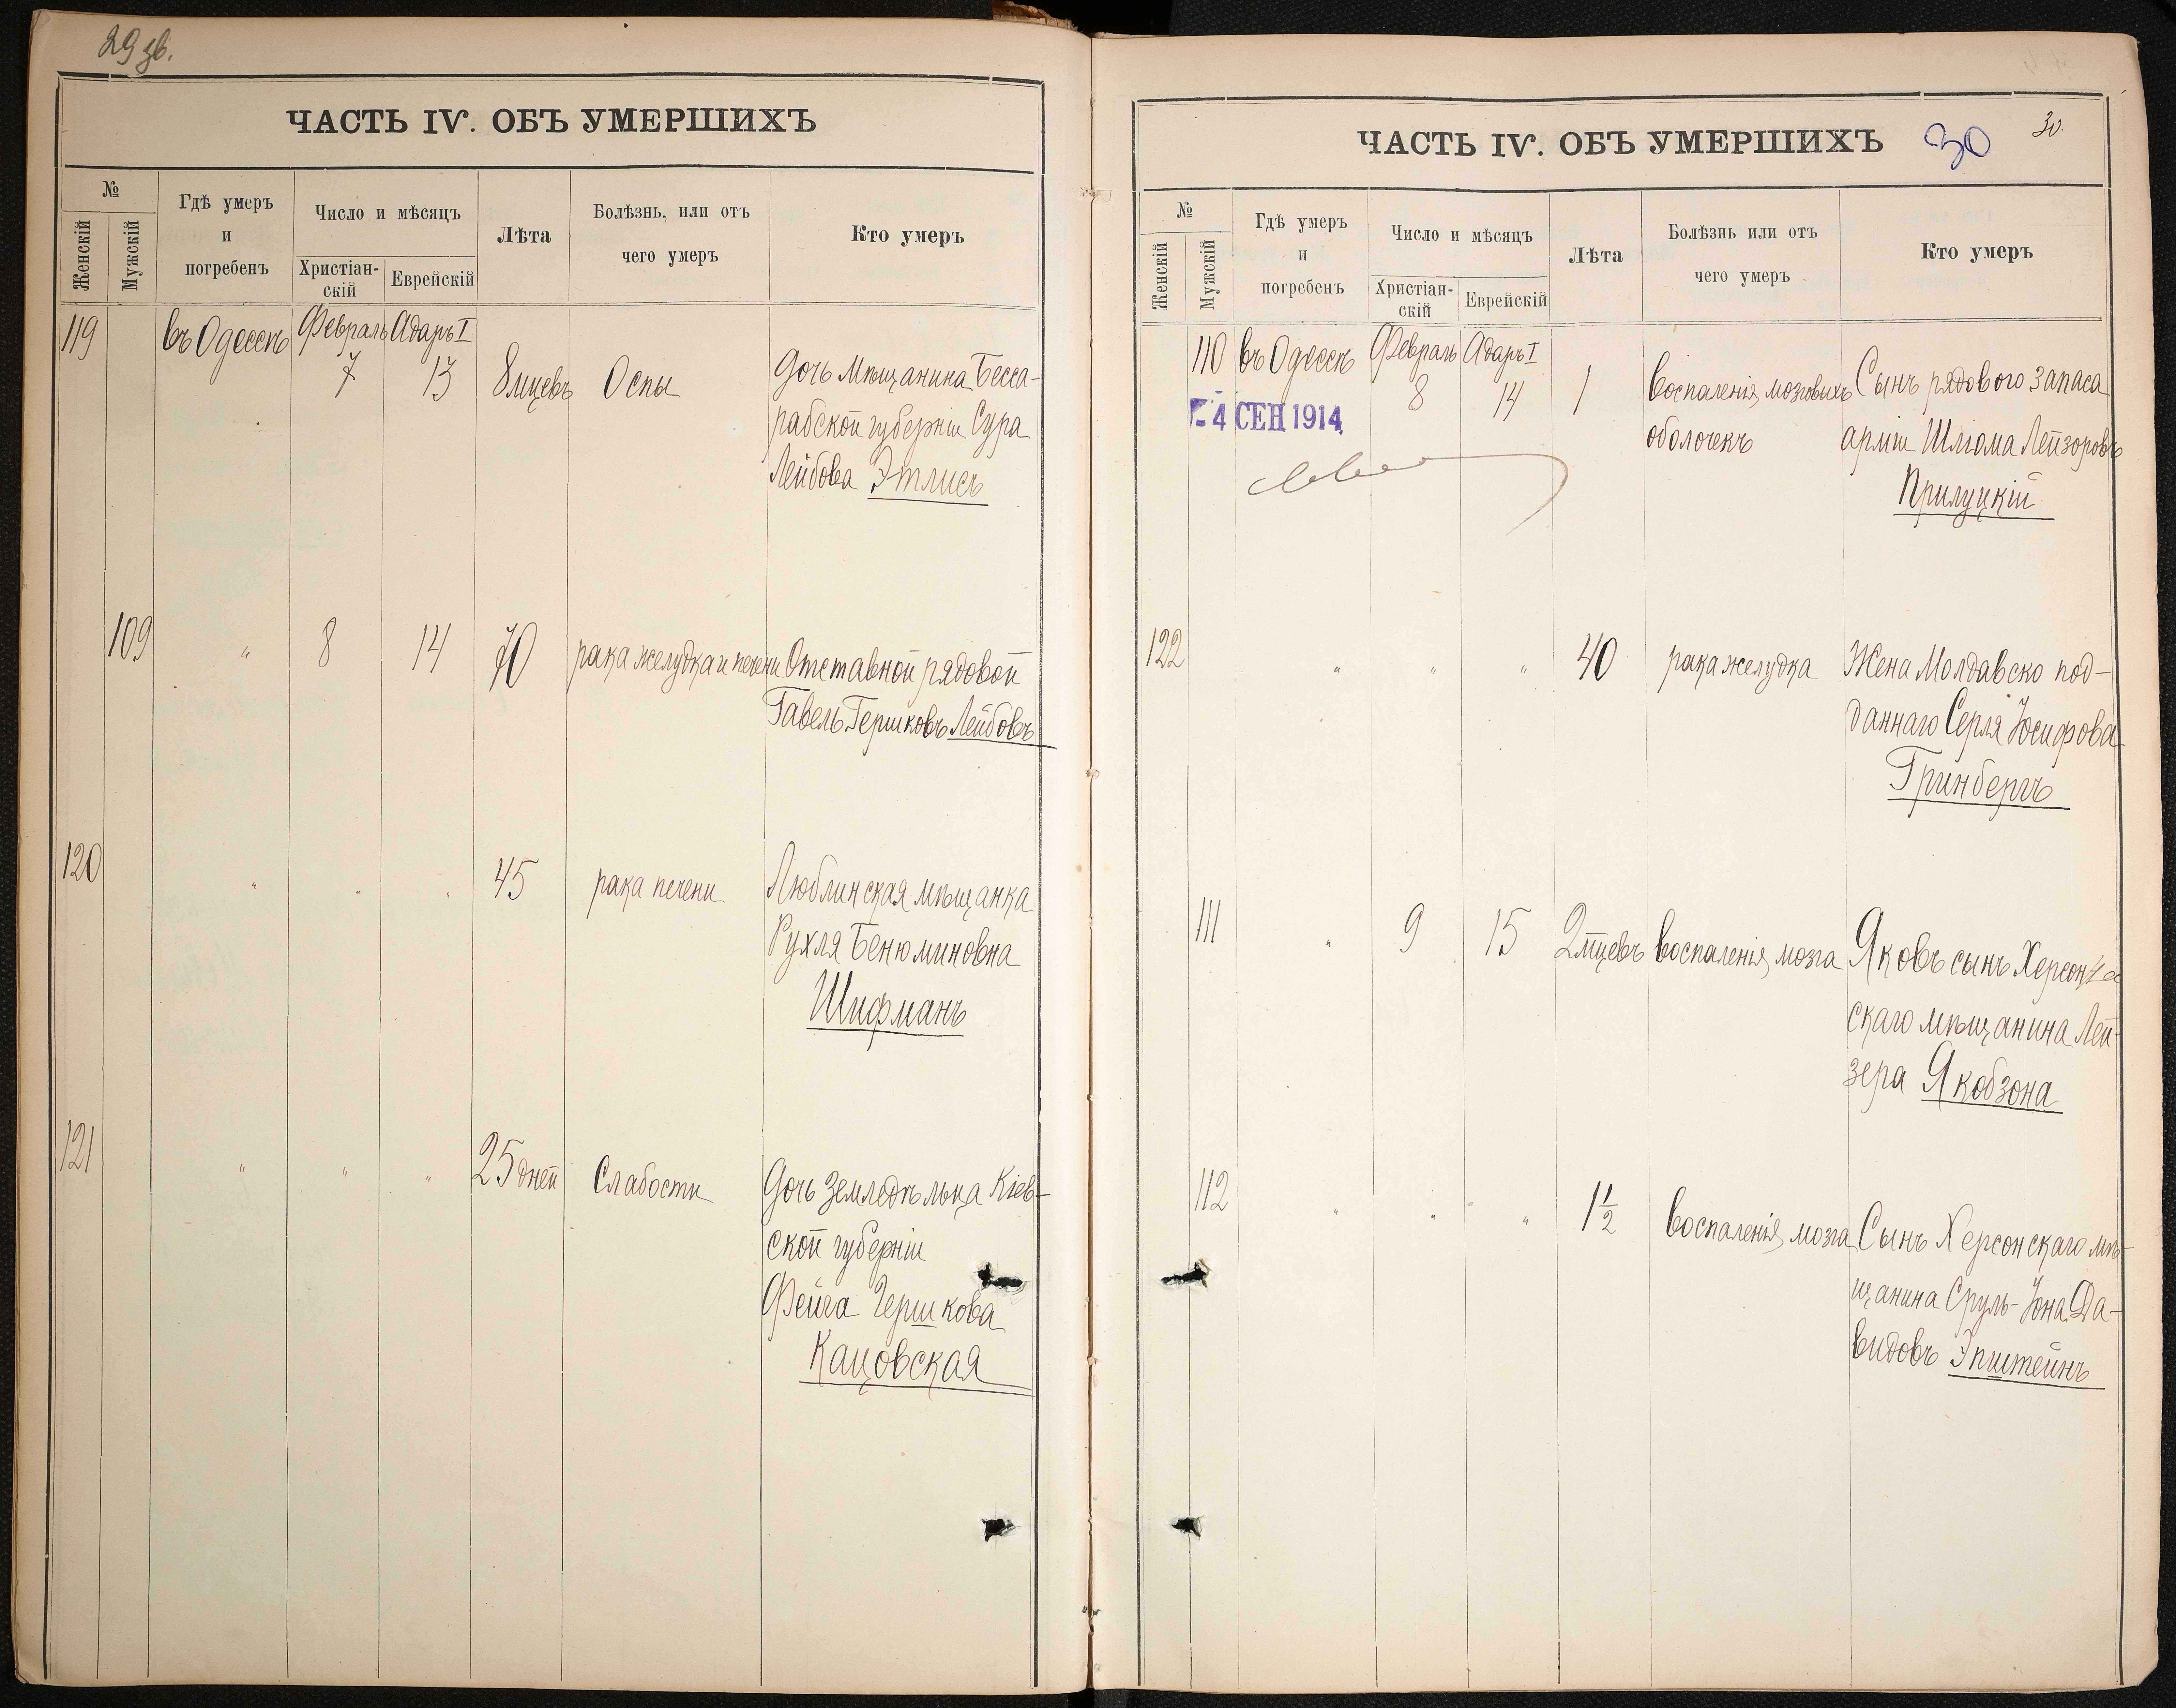 29 зв.
ЧАСТЬ IV. ОБЪ УМЕРШИХЪ
№
Женскій
Мужскій
Гдѣ умеръ
и
погребенъ
Число и мѣсяцъ
Христіан-
скій
Еврейскій
Лѣта
Болѣзнь, или отъ
чего умеръ
Кто умеръ
119 въ Одессѣ Февраль Адаръ I
7 13 8 мцевъ Оспы Дочь Мѣщанина Бесса-
рабской губерніи Сура
Лейбова Этлисъ
109 " 8 14 70 рака желудка и печени Отставной рядовой
Гавель Гершковъ Лейбовъ
120 " " " 45 рака печени Люблинская мѣщанка
Рухля Бенюминовна
Шифманъ
121 " " " 25 дней Слабости Дочь земледѣльца Кіев-
ской губерніи
Фейга Гершкова
Кацовская
ЧАСТЬ IV. ОБЪ УМЕРШИХЪ 30 30.
№
Женскій
Мужскій
Гдѣ умеръ
и
погребенъ
Число и мѣсяцъ
Христіан-
скій
Еврейскій
Лѣта
Болѣзнь или отъ
чего умеръ
Кто умеръ
110 въ Одессѣ Февраль Адаръ I
8 14 1 воспаленія мозговыхъ Сынъ рядового запаса
- 4 СЕН 1914
оболочекъ арміи Шліома Лейзоровъ
Прилуцкій
122 " " " 40 рака желудка Жена Молдавско под-
даннаго Серля Іосифова
Гринбергъ
111 " 9 15 2 мцевъ воспаленія мозга Яковъ сынъ Херсон-
скаго мѣщанина Лей-
зера Якобзона
112 " " " 1 1/2 воспаленія мозга Сынъ Херсонскаго мѣ-
щанина Сруль-Іона Да-
видовъ Эпштейнъ